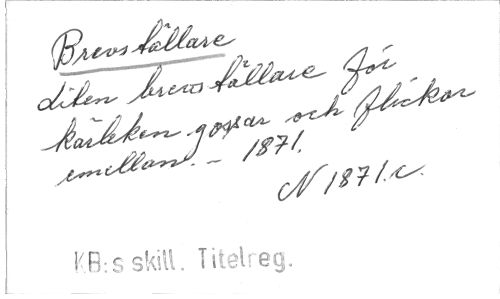 Brevställare
Liten brevställare för
kärleken gossar och flickor
emellan. - 1871.
N 1871.c.
KB:s skill. Titelreg.